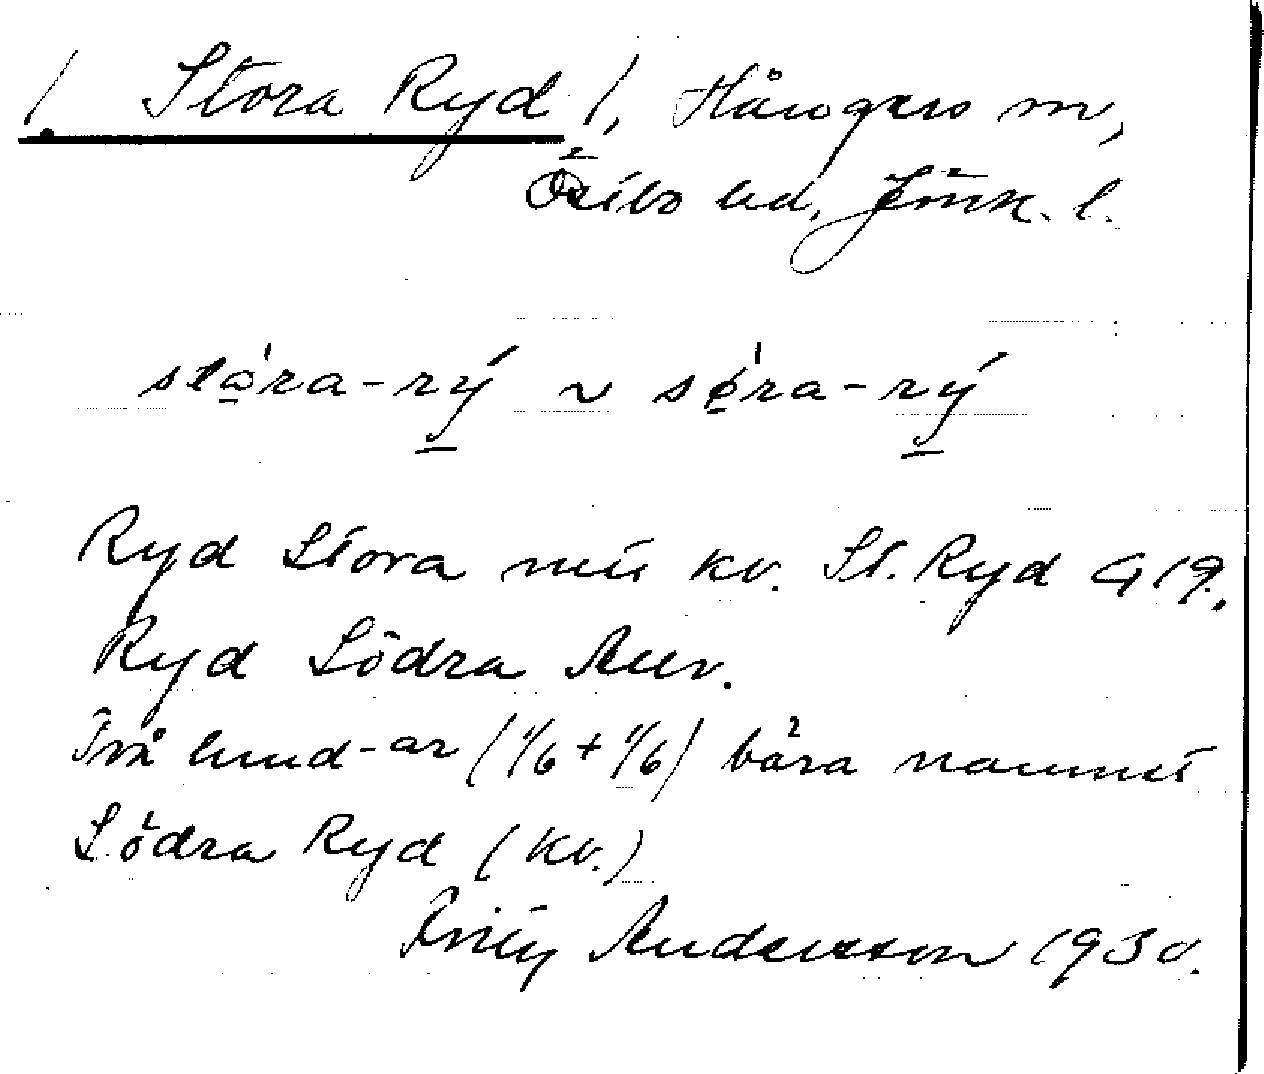 /. Stora Ryd /, Hångers sn,
Östbo hd, Jönk. l.
stǫ́ra-rý ~ sǿra-rý
Ryd Stora mtl kv. St. Ryd G 19.
Ryd Södra
Två hmd-ar (1/6 + 1/6) bära namnet
Södra Ryd (kv.)
Andersson 1930.